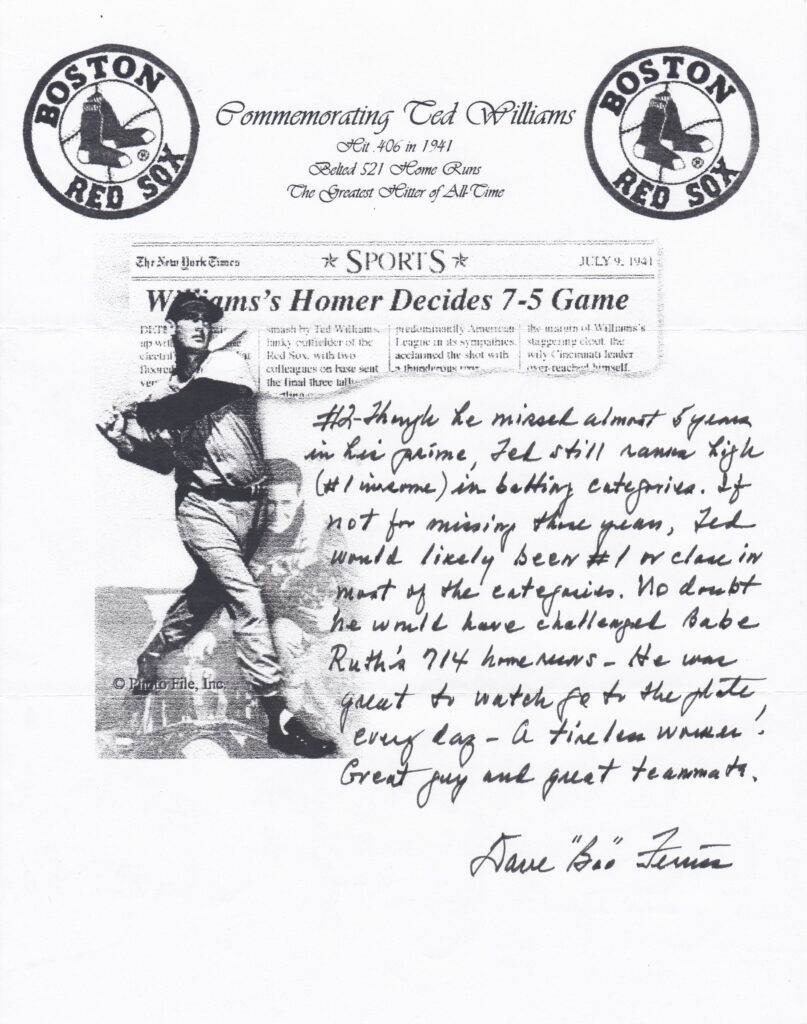 BOSTON
RED SOX
BOSTON
RED SOX
Commemorating Ted Williams
Hit .406 in 1941
Belted 521 Home Runs
The Greatest Hitter of All-Time
The New York Times
SPORTS
JULY 9, 1941
Williams's Homer Decides 7-5 Game
smash by Ted Williams,
lanky outfielder of the
Red Sox, with two
colleagues on base sent
the final three
predominantly American
League in its sympathies,
acclaimed the shot with
a thunderous
the margin of Williams's
staggering clout, the
wily Cincinnati leader
over-reached himself.
#2-Though he missed almost 5 years
in his prime, Ted still ranks high
(#1 in some) in batting categories. If
not for missing those years, Ted
would likely been #1 or close in
most of the categories. No doubt
he would have challenged Babe
Ruth's 714 home runs – He was
great to watch go to the plate
every day – A tireless worker!
Great guy and great teammate.
Dave "Boo" Ferriss
© Photo File, Inc.